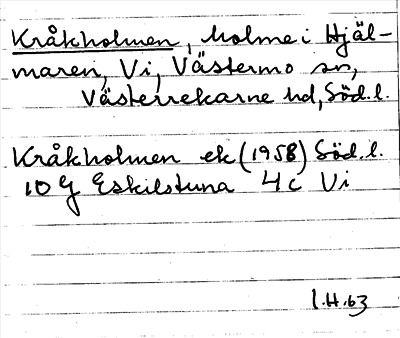 Kråkholmen, holme i Hjäl-
maren, Vi, Västermo sn,
Västerrekarne hd, Söd.l.
Kråkholmen ek (1958) Söd.l.
10 G Eskilstuna 4 c Vi
I.H.63